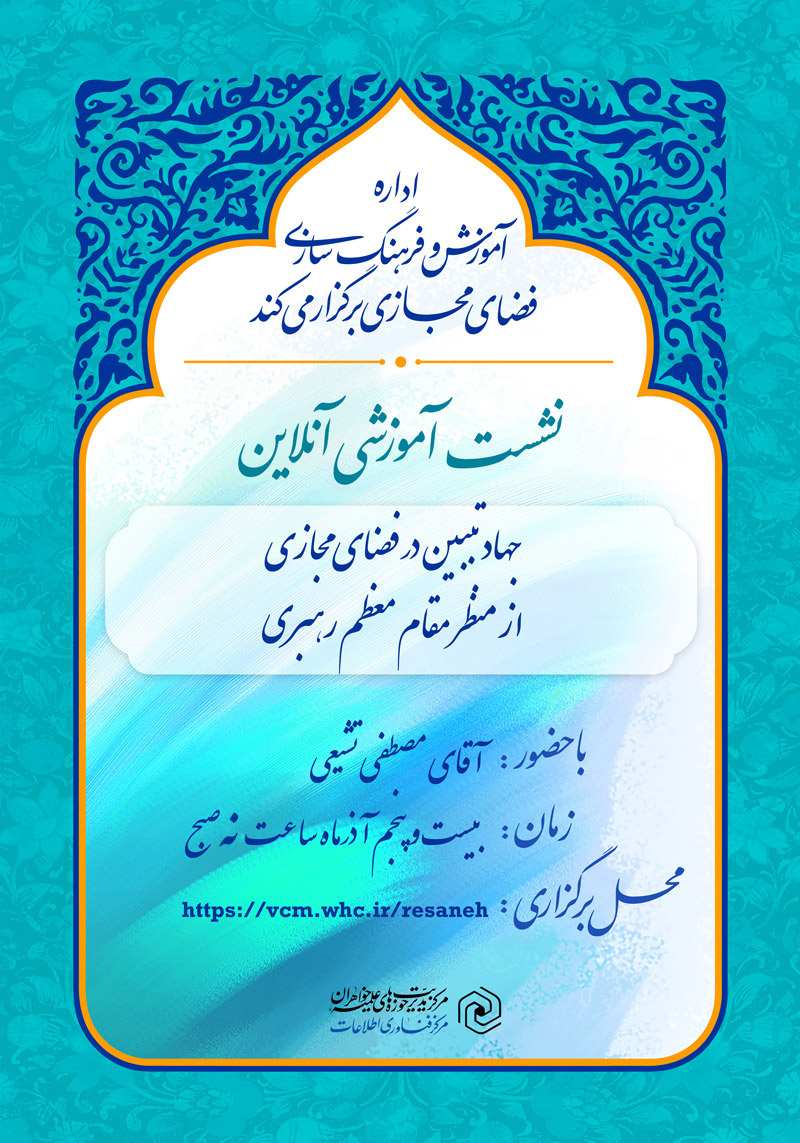 اداره
آموزش و فرهنگ سازی
فضای مجازی برگزار می کند
نشست آموزشی آنلاین
جهاد تبیین در فضای مجازی
از منظر مقام معظم رهبری
با حضور : آقای مصطفی تشیعی
زمان : بیست و پنجم آذرماه ساعت نه صبح
محل برگزاری : https://vcm.whc.ir/resaneh
مرکز مدیریت حوزه های علمیه خواهران
مرکز فناوری اطلاعات